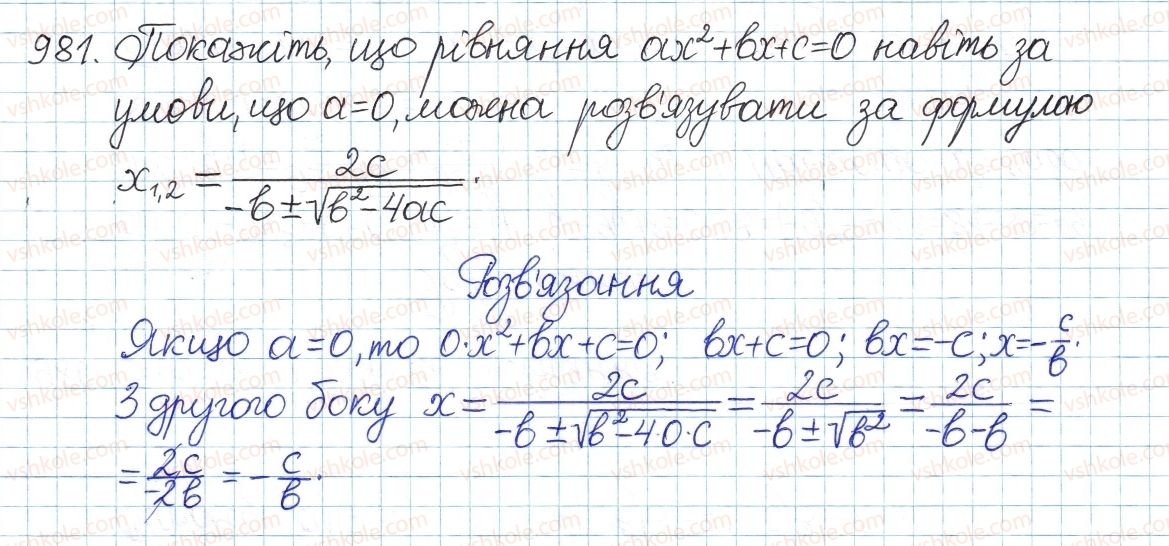 981. Покажіть, що рівняння ax²+bx+c=0 навіть за
умови, що a=0, можна розв'язувати за формулою
x₁,₂ = 2c / (-b ± √(b²-4ac)).
Розв'язання
Якщо a=0, то 0·x²+bx+c=0; bx+c=0; bx=-c; x=-c/b.
З другого боку x = 2c / (-b ± √(b²-4·0·c)) = 2c / (-b ± √b²) = 2c / (-b-b) =
= 2c / (-2b) = -c/b.